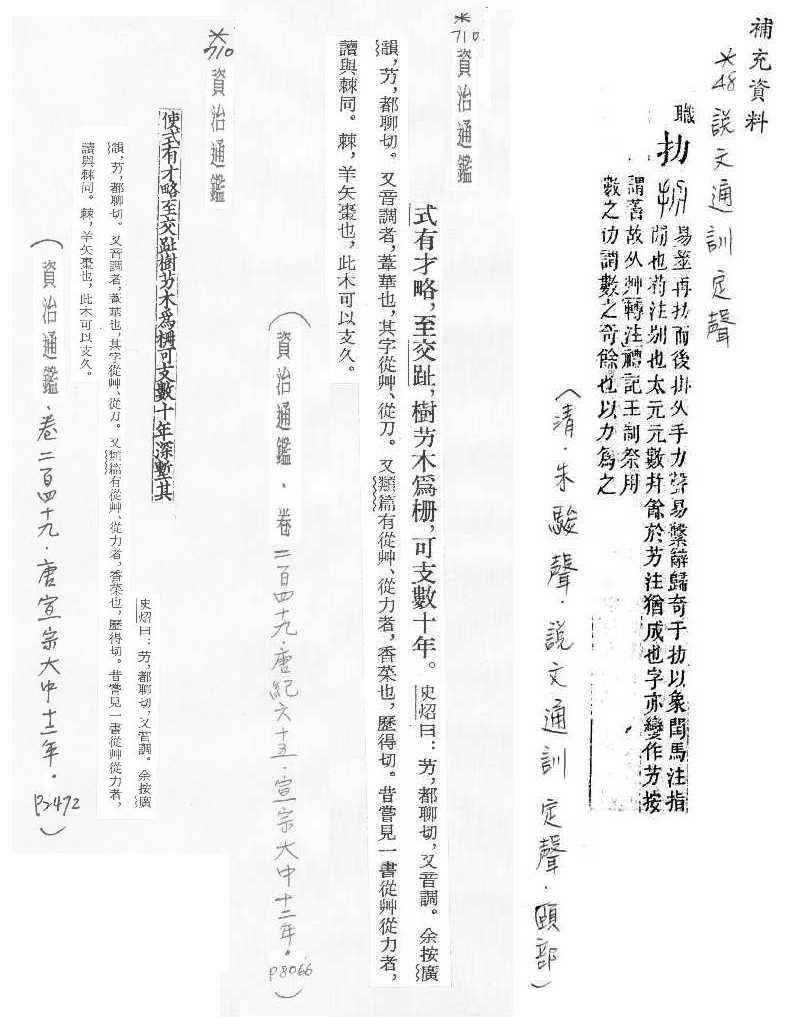 補充資料
*48 説文通訓定聲
職
扐
易筮再扐而後掛从手力聲易繫辭歸奇于扐以象閏馬注指
閒也荀注别也太元元數并餘於艻注猶成也字亦變作艻按
謂蓍故从艸轉注禮記王制祭用
數之仂謂數之奇餘也以力爲之
(清.朱駿聲.説文通訓定聲.頤部)
*710
資治通鑑
式有才略,至交趾,樹艻木爲柵,可支數十年。史炤曰:艻,都聊切,又音調。余按廣
韻,艻,都聊切。又音調者,葦華也,其字從艸、從刀。又類篇有從艸、從力者,香菜也,歷得切。昔嘗見一書從艸從力者,
讀與棘同。棘,羊矢棗也,此木可以支久。
(資治通鑑.卷二百四十九.唐紀六十五.宣宗大中十二年。P8066)
*710
資治通鑑
使式有才略至交趾樹艻木爲柵可支數十年深塹其
史炤曰:艻,都聊切,又音調。余按廣
韻,艻,都聊切。又音調者,葦華也,其字從艸、從刀。又類篇有從艸、從力者,香菜也,歷得切。昔嘗見一書從艸從力者,
讀與棘同。棘,羊矢棗也,此木可以支久。
(資治通鑑.卷二百四十九.唐宣宗大中十二年.P3472)